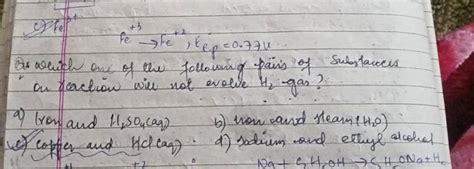 c) Fe²⁺
Fe⁺³ → Fe⁺², E_Rp = 0.77V
Q: which one of the following pairs of Substances
on reaction will not evolve H₂ gas?
a) Iron and H₂SO₄(aq) b) Iron and steam(H₂O)
c) Copper and HCl(aq) d) Sodium and ethyl alcohol
Na + C₂H₅OH → C₂H₅ONa + H₂
+2